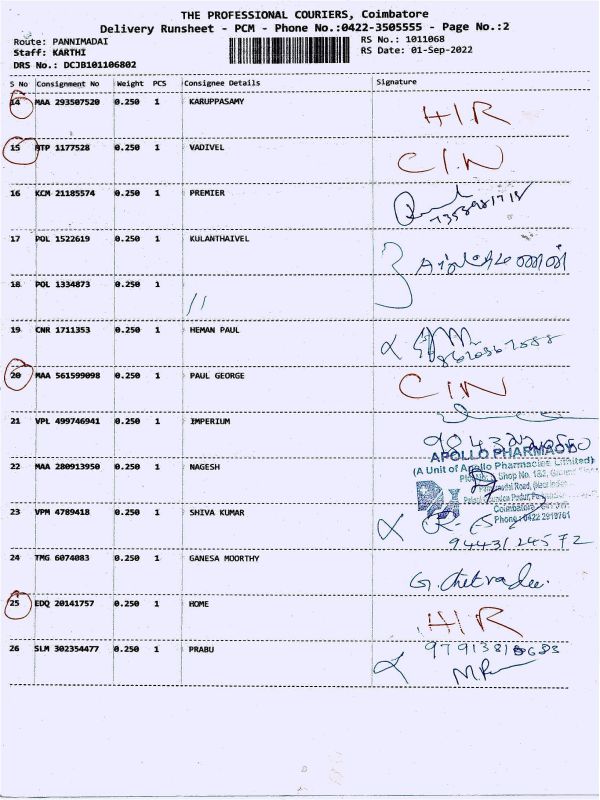 THE PROFESSIONAL COURIERS, Coimbatore
Delivery Runsheet - PCM - Phone No.:0422-3505555 - Page No.:2
Route: PANNIMADAI
RS No.: 1011068
Staff: KARTHI
RS Date: 01-Sep-2022
DRS No.: DCJB101106802
S No Consignment No Weight PCS Consignee Details Signature
14 MAA 293507520 0.250 1 KARUPPASAMY H/R
15 NTP 1177528 0.250 1 VADIVEL C/N
16 KCM 21185574 0.250 1 PREMIER
17 POL 1522619 0.250 1 KULANTHAIVEL
18 POL 1334873 0.250 1 //
19 CNR 1711353 0.250 1 HEMAN PAUL
20 MAA 561599098 0.250 1 PAUL GEORGE C/N
21 VPL 499746941 0.250 1 IMPERIUM
APOLLO PHARMACY
(A Unit of Apollo Pharmacies Limited)
22 MAA 280913950 0.250 1 NAGESH
Shop No. 1&2,
Coimbatore
Phone: 0422 2919761
23 VPM 4789418 0.250 1 SHIVA KUMAR
9443124572
24 TMG 6074083 0.250 1 GANESA MOORTHY
25 EDQ 20141757 0.250 1 HOME H/R
26 SLM 302354477 0.250 1 PRABU